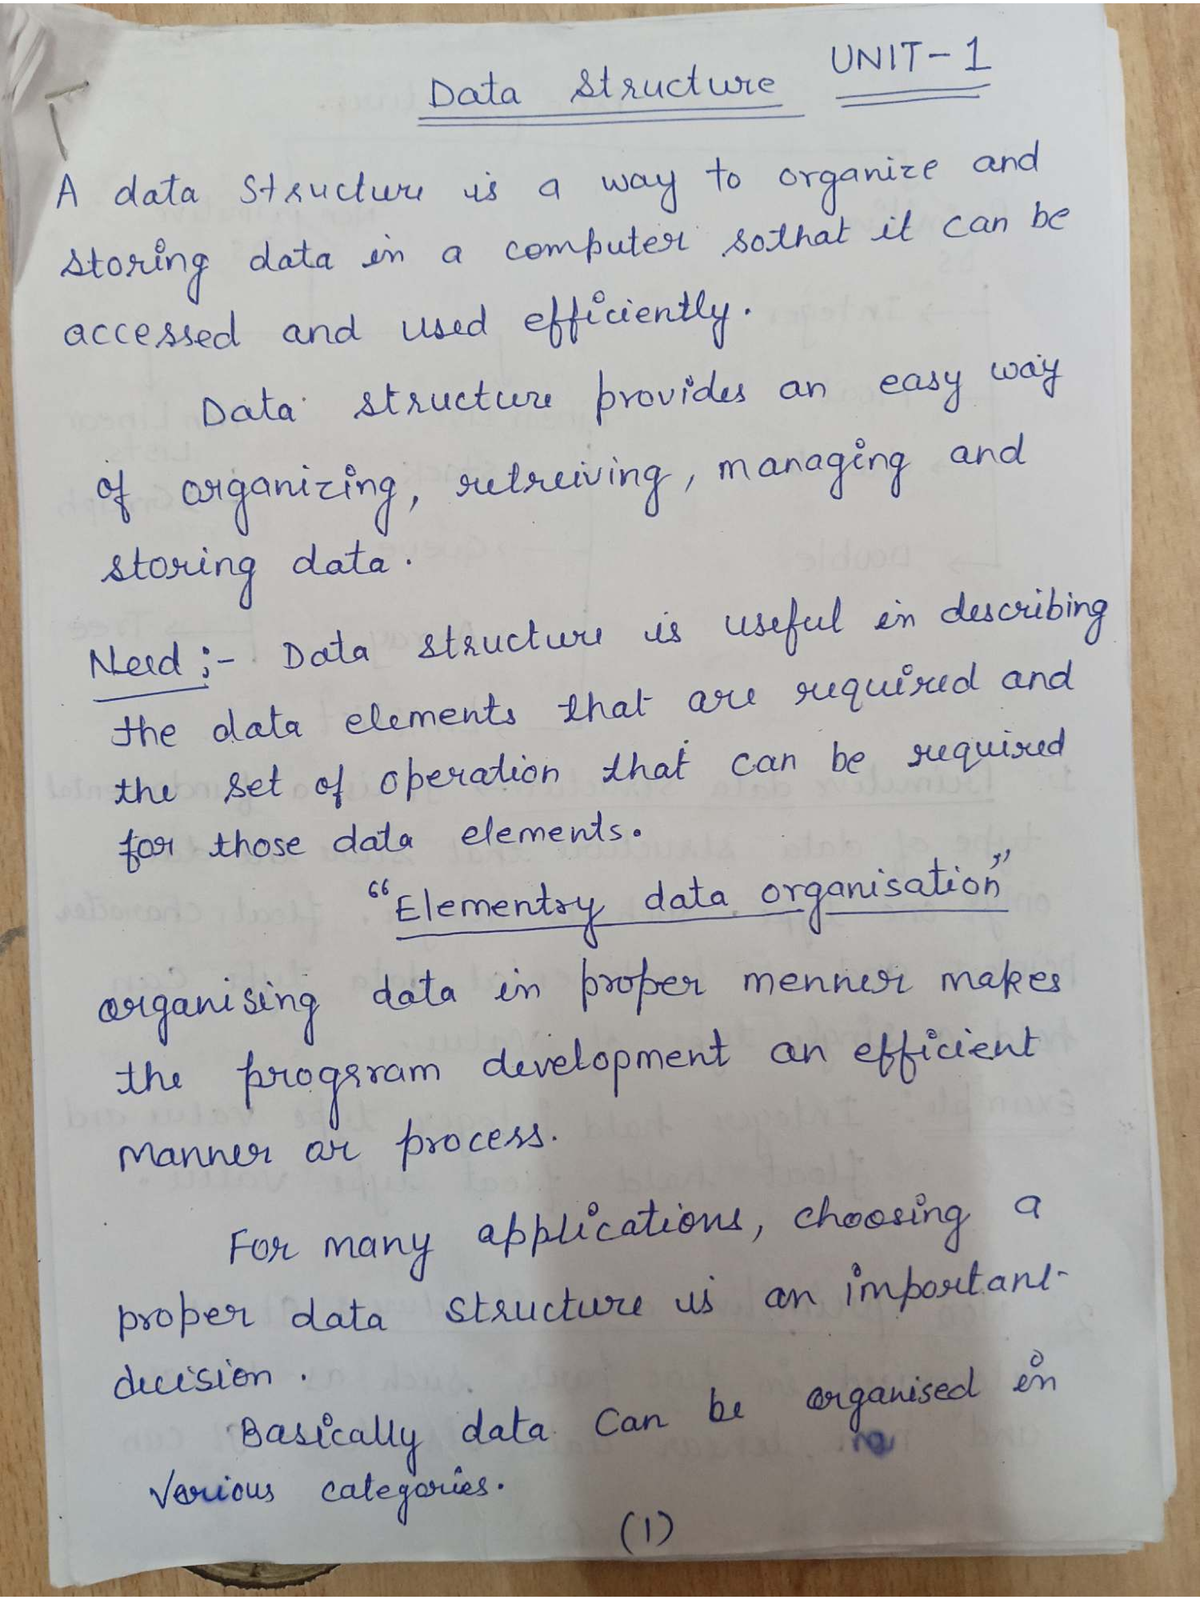 Data Structure UNIT-1
A data Structure is a way to organize and
storing data in a computer sothat it can be
accessed and used efficiently.
Data structure provides an easy way
of organizing, retreiving, managing and
storing data.
Need :- Data structure is useful in describing
the data elements that are required and
the set of operation that can be required
for those data elements.
"Elementry data organisation"
organising data in proper menner makes
the progsram development an efficient
manner or process.
For many applications, choosing a
proper data structure is an important
decision.
Basically data can be organised in
various categories.
(1)